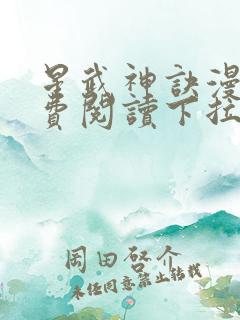 星武神訣漫
費閱讀下拉
岡田啓介
未經同意禁止轉載